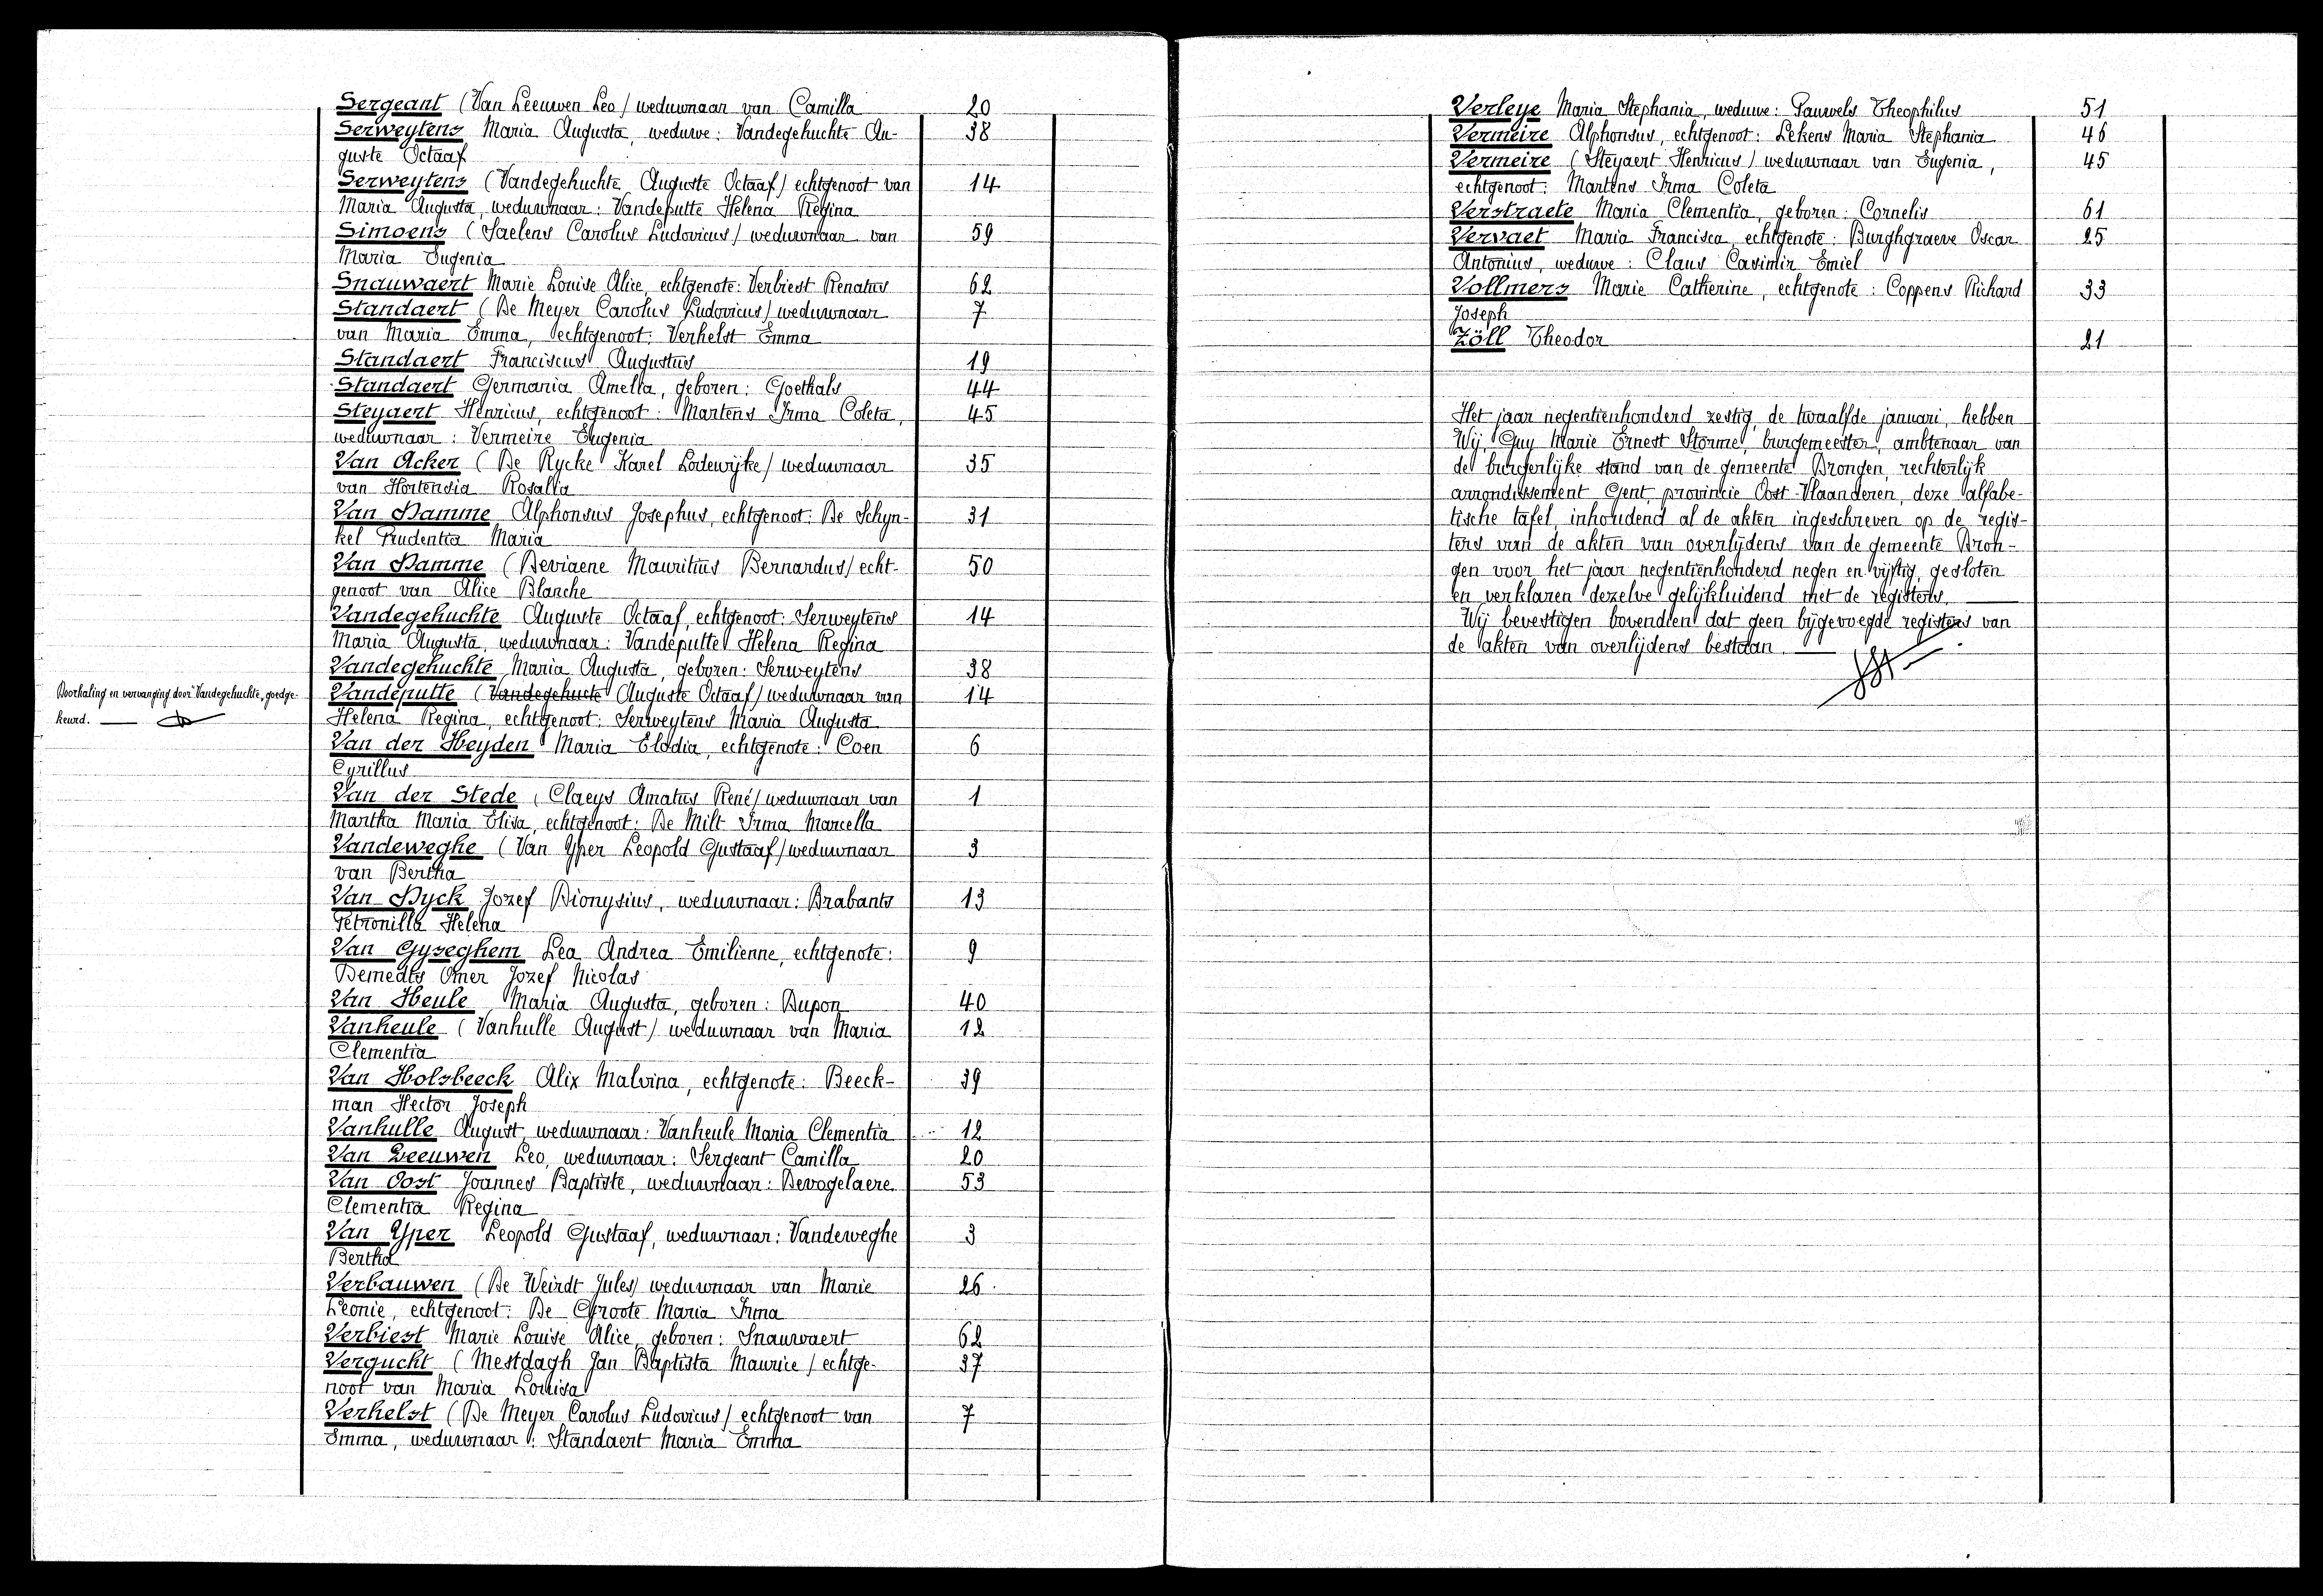 Sergeant (Van Leeuwen Leo/ weduwnaar van Camilla 20
Serweytens Maria Augusta, weduwe: Vandegehuchte Au- 38
guste Octaaf
Serweytens (Vandegehuchte Auguste Octaaf/ echtgenoot van 14
Maria Augusta, weduwnaar: Vandeputte Helena Regina
Simoens (Saelens Carolus Ludovicus/ weduwnaar van 59
Maria Eugenia
Snauwaert Marie Louise Alice, echtgenote: Verbiest Renatus 62
Standaert (De Meyer Carolus Ludovicus/ weduwnaar 7
van Maria Emma, echtgenoot: Verhelst Emma
Standaert Franciscus Augustus 19
Standaert Germania Amella, geboren: Goethals 44
Steyaert Henricus, echtgenoot: Martens Irma Coleta, 45
weduwnaar: Vermeire Eugenia
Van Acker (De Rycke Karel Lodewijke/ weduwnaar 35
van Hortensia Rosalia
Van Damme Alphonsus Josephus, echtgenoot: De Schyn- 31
kel Prudentia Maria
Van Damme (Deviaene Mauritius Bernardus/ echt- 50
genoot van Alice Blanche
Vandegehuchte Auguste Octaaf, echtgenoot: Serweytens 14
Maria Augusta, weduwnaar: Vandeputte Helena Regina
Vandegehuchte Maria Augusta, geboren: Serweytens 38
Doorhaling en vervanging door "Vandegehuchte, goedge-
keurd.
Vandeputte (Vandegehucte Auguste Octaaf/ weduwnaar van 14
Helena Regina, echtgenoot: Serweytens Maria Augusta
Van der Heyden Maria Elodia, echtgenote: Coen 6
Cyrillus
Van der Stede (Claeys Amatus René/ weduwnaar van 1
Martha Maria Elisa, echtgenoot: De Milt Irma Marcella
Vandeweghe (Van Yper Leopold Gustaaf/ weduwnaar 3
van Bertha
Van Dyck Jozef Dionysius, weduwnaar: Brabants 13
Petronilla Helena
Van Gyseghem Lea Andrea Emilienne, echtgenote: 9
Demedts Omer Jozef Nicolas
Van Heule Maria Augusta, geboren: Dupon 40
Vanheule (Vanhulle August/ weduwnaar van Maria 12
Clementia
Van Holsbeeck Alix Malvina, echtgenote: Beeck- 39
man Hector Joseph
Vanhulle August, weduwnaar: Vanheule Maria Clementia 12
Van Leeuwen Leo, weduwnaar: Sergeant Camilla 20
Van Oost Joannes Baptiste, weduwnaar: Devogelaere 53
Clementia Regina
Van Yper Leopold Gustaaf, weduwnaar: Vandeweghe 3
Bertha
Verbauwen (De Weirdt Jules/ weduwnaar van Marie 26
Leonie, echtgenoot: De Groote Maria Irma
Verbiest Marie Louise Alice, geboren: Snauwaert 62
Vergucht (Mestdagh Jan Baptista Maurice/ echtge- 37
noot van Maria Louisa
Verhelst (De Meyer Carolus Ludovicus/ echtgenoot van 7
Emma, weduwnaar: Standaert Maria Emma
Verleye Maria Stephania, weduwe: Pauwels Theophilus 51
Vermeire Alphonsus, echtgenoot: Lekens Maria Stephania 46
Vermeire (Steyaert Henricus/ weduwnaar van Eugenia, 45
echtgenoot: Martens Irma Coleta
Verstraete Maria Clementia, geboren: Cornelis 61
Vervaet Maria Francisca, echtgenote: Burghgraeve Oscar 25
Antonius, weduwe: Claus Casimir Emiel
Vollmers Marie Catherine, echtgenote: Coppens Richard 33
Joseph
Zöll Theodor 21
Het jaar negentienhonderd zestig, de twaalfde januari, hebben
Wij, Guy Marie Ernest Storme, burgemeester, ambtenaar van
de burgerlijke stand van de gemeente Drongen, rechterlijk
arrondissement Gent, provincie Oost-Vlaanderen, deze alfabe-
tische tafel, inhoudend al de akten ingeschreven op de regis-
ters van de akten van overlijdens van de gemeente Dron-
gen voor het jaar negentienhonderd negen en vijftig, gesloten
en verklaren dezelve gelijkluidend met de registers.
Wij bevestigen bovendien dat geen bijgevoegde registers van
de akten van overlijdens bestaan.